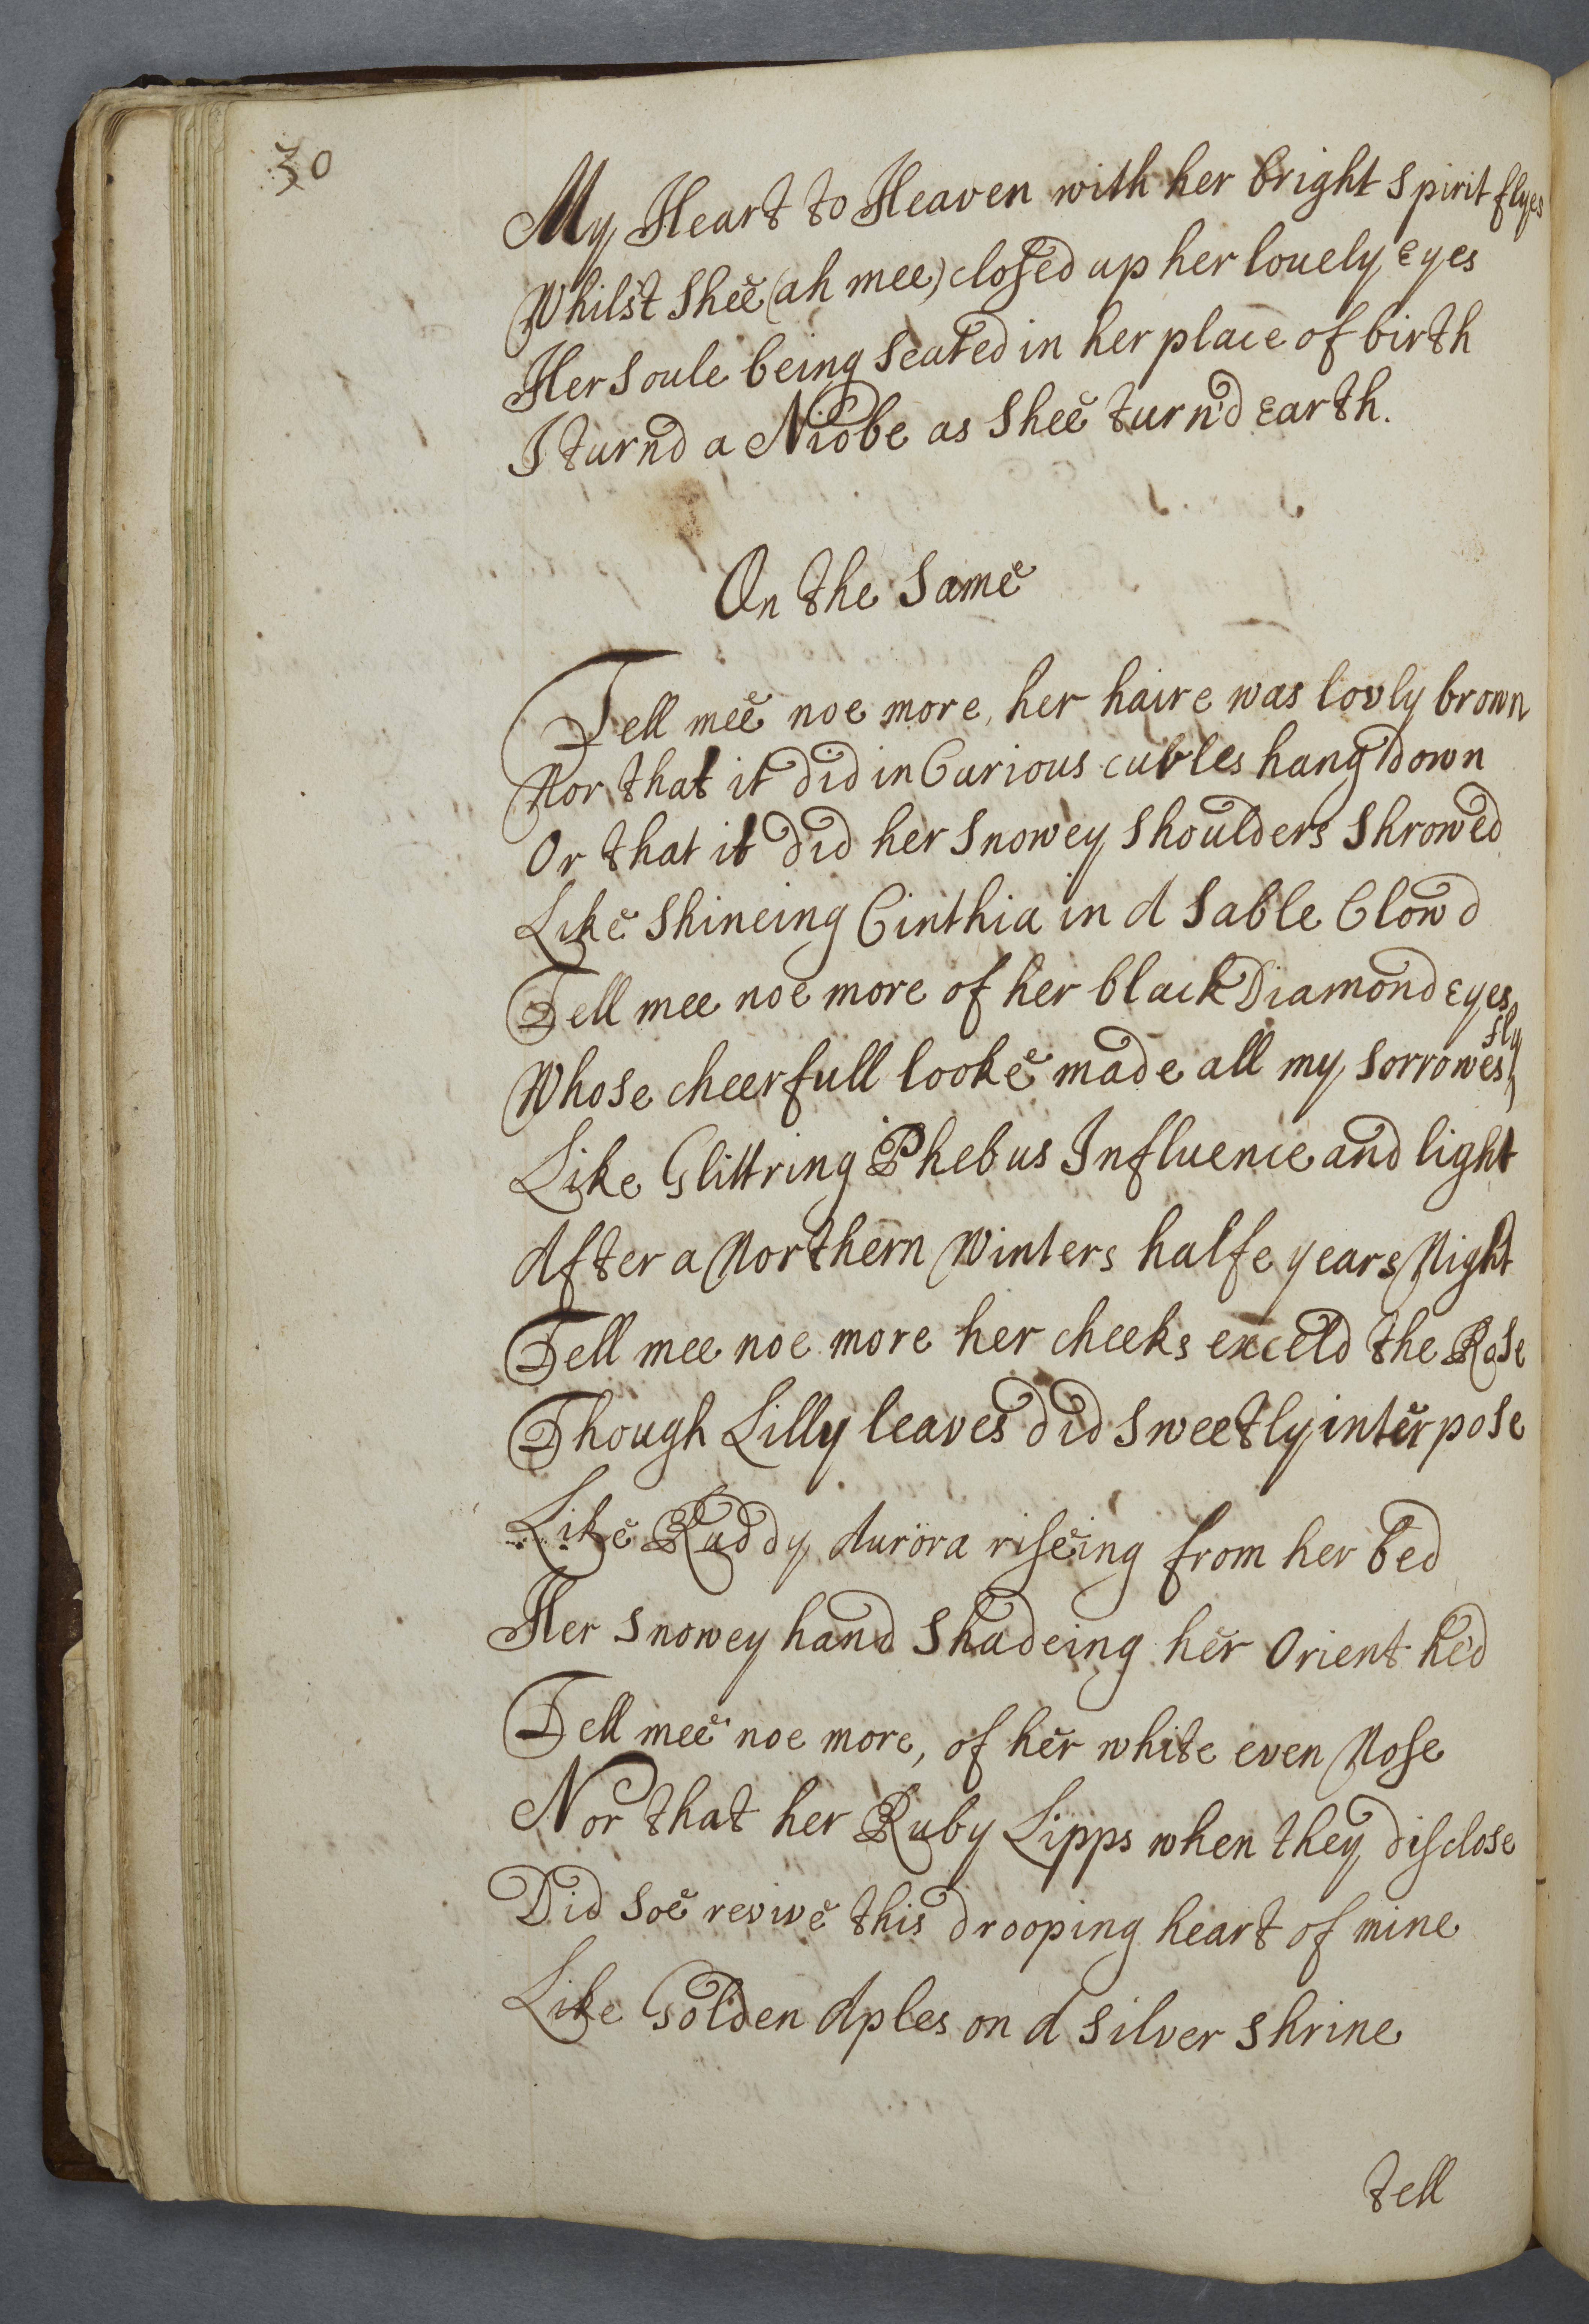 30
My Heart to Heaven with her bright spirit flyes
Whilst shee (ah mee) closed up her louely eyes
Her soule being seated in her place of birth
I turnd a Niobe as shee turn'd earth.
On the same
Tell mee noe more, her haire was lovly brown
Nor that it did in Curious curles hang down
Or that it did her snowey shoulders shrowed
Like shineing Cinthia in A sable Clowd
Tell mee noe more of her black Diamond eyes
Whose cheerfull looke made all my sorrowes fly
Like Glittring Phebus Influence and light
After a Northern Winters halfe years Night
Tell mee noe more her cheeks exceld the Rose
Though Lilly leaves did sweetly interpose
Like Ruddy Aurora riseing from her bed
Her snowey hand shadeing her Orient hed
Tell mee noe more, of her white even Nose
Nor that her Ruby Lipps when they disclose
Did soe revive this drooping heart of mine
Like Golden Aples on A silver shrine
tell